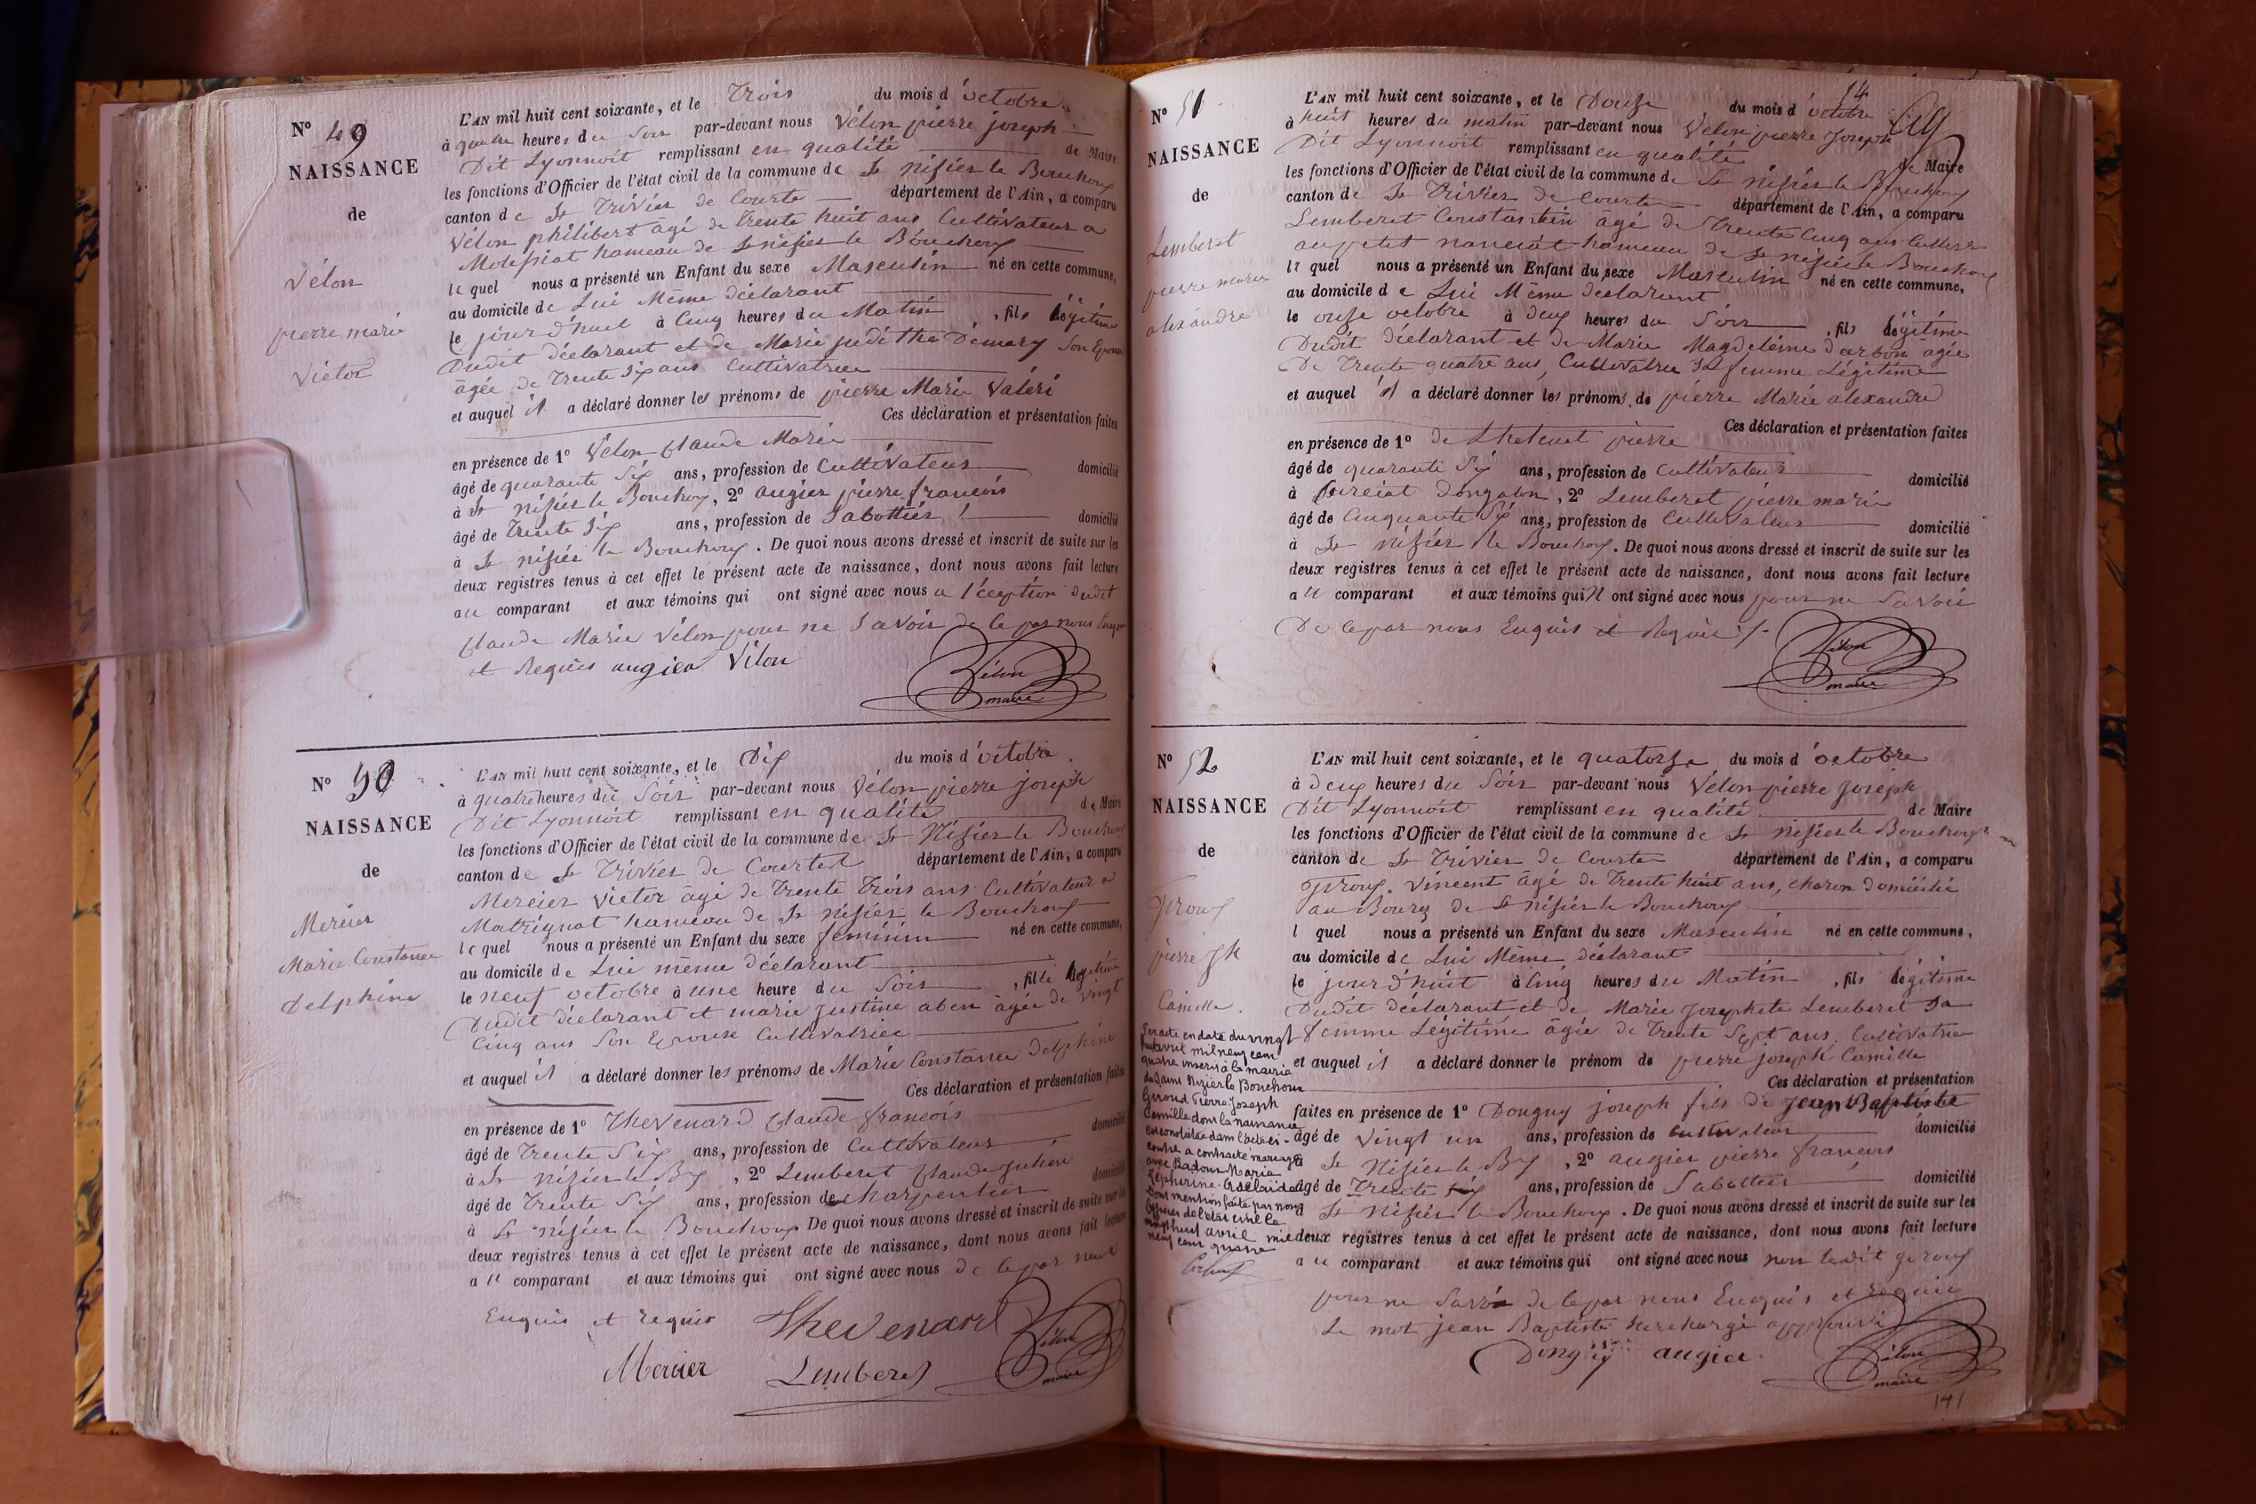 N° 49
NAISSANCE
de
Vélon
pierre marie
Victor
L'AN mil huit cent soixante, et le Trois du mois d'octobre
à quatre heures du Soir par-devant nous Vélon pierre joseph
Dit Lyonnoit remplissant en qualité de Maire
les fonctions d'Officier de l'état civil de la commune de St Nisier le Bouchoux
canton de St Trivier de Courte département de l'Ain, a comparu
Vélon philibert âgé de Trente huit ans Cultivateur a
hameau de St nisier le Bouchoux
le quel nous a présenté un Enfant du sexe Masculin né en cette commune,
au domicile de Lui Même déclarant
le jour d'huit à Cinq heures du Matin , fils légitime
Dudit déclarant et de Marie judithe Demary Son Epouse
âgée de Trente Six ans Cultivatrice
et auquel il a déclaré donner les prénoms de pierre Marie
Ces déclaration et présentation faites
en présence de 1° Vélon Claude Marie
âgé de quarante Six ans, profession de Cultivateur domicilié
à St nisier le Bouchoux, 2° augier pierre francois
âgé de Trente Six ans, profession de Sabottier domicilié
à St nisier le Bouchoux. De quoi nous avons dressé et inscrit de suite sur les
deux registres tenus à cet effet le présent acte de naissance, dont nous avons fait lecture
au comparant et aux témoins qui ont signé avec nous a l'éception dudit
Claude Marie Vélon pour ne Savoir de ce par nous Enquis
et Requis augier Vélon
Vélon
maire
N° 50
NAISSANCE
de
Mercier
Marie Constance
Delphine
L'AN mil huit cent soixante, et le Dix du mois d'octobre
à quatre heures du Soir par-devant nous Vélon pierre joseph
Dit Lyonnoit remplissant en qualité de Maire
les fonctions d'Officier de l'état civil de la commune de St Nisier le Bouchoux
canton de St Trivier de Courtes département de l'Ain, a comparu
Mercier Victor âgé de Trente Trois ans Cultivateur a
Matrignat hameau de St nisier le Bouchoux
le quel nous a présenté un Enfant du sexe féminin né en cette commune,
au domicile de Lui même déclarant
le neuf octobre à une heure du Soir , fille légitime
Dudit déclarant et marie justine aben âgée de vingt
Cinq ans Son Epouse Cultivatrice
et auquel il a déclaré donner les prénoms de Marie Constance Delphine
Ces déclaration et présentation faites
en présence de 1° Thevenard Claude francois
âgé de Trente Six ans, profession de Cultivateur domicilié
à St nizier le Bx, 2° Lemberet Claude
âgé de Trente Six ans, profession de charpentier domicilié
à St nisier le Bouchoux De quoi nous avons dressé et inscrit de suite sur les
deux registres tenus à cet effet le présent acte de naissance, dont nous avons fait lecture
au comparant et aux témoins qui ont signé avec nous de ce par nous
Enquis et requis Thevenard
Mercier Lemberet
Vélon
maire
14
N° 51
NAISSANCE
de
Lemberet
pierre marie
alexandre
L'AN mil huit cent soixante, et le Douse du mois d'octobre
à huit heures du matin par-devant nous Vélon pierre Joseph
Dit Lyonnoit remplissant en qualité de Maire
les fonctions d'Officier de l'état civil de la commune de St nisier le Bouchoux
canton de St Trivier de Courte département de l'Ain, a comparu
Lemberet Constantin âgé de Trente Cinq ans Cultivr
au petit hameau de St nisier le Bouchoux
le quel nous a présenté un Enfant du sexe Masculin né en cette commune,
au domicile de Lui Même déclarant
le onse octobre à deux heures du Soir , fils légitime
Dudit déclarant et de Marie Magdeleine darbon âgée
De Trente quatre ans, Cultivatrice Sa femme Légitime
et auquel il a déclaré donner les prénoms de pierre Marie alexandre
Ces déclaration et présentation faites
en présence de 1° de pierre
âgé de quarante Six ans, profession de Cultivateur domicilié
à Curciat Dongalon, 2° Lemberet pierre marie
âgé de Cinquante Six ans, profession de Cultivateur domicilié
à St nisier le Bouchoux. De quoi nous avons dressé et inscrit de suite sur les
deux registres tenus à cet effet le présent acte de naissance, dont nous avons fait lecture
au comparant et aux témoins qui n'ont signé avec nous pour ne Savoir
De ce par nous Enquis et Requis
Vélon
maire
N° 52
NAISSANCE
de
Giroux
pierre jh
Camille
L'AN mil huit cent soixante, et le quatorse du mois d'octobre
à Deux heures du Soir par-devant nous Vélon pierre Joseph
Dit Lyonnoit remplissant en qualité de Maire
les fonctions d'Officier de l'état civil de la commune de St nisier le Bouchoux
canton de St Trivier de Courte département de l'Ain, a comparu
Giroux Vincent âgé de Trente huit ans, charon domicilié
au Bourg de St nisier le Bouchoux
l quel nous a présenté un Enfant du sexe Masculin né en cette commune,
au domicile de Lui Même déclarant
le jour d'huit à Cinq heures du Matin , fils légitime
Dudit déclarant et de Marie Josephete Lemberet Sa
femme Légitime âgée de Trente Sept ans Cultivatrice
et auquel il a déclaré donner le prénom de pierre joseph Camille
Ces déclaration et présentation
faites en présence de 1° Donguy joseph fils de Jean Baptiste
âgé de Vingt un ans, profession de cultivateur domicilié
à St Nisier le Bx, 2° augier pierre francois
âgé de Trente Six ans, profession de Sabottier domicilié
à St Nisier le Bouchoux. De quoi nous avons dressé et inscrit de suite sur les
deux registres tenus à cet effet le présent acte de naissance, dont nous avons fait lecture
au comparant et aux témoins qui ont signé avec nous non ledit giroux
pour ne Savoir de ce par nous Enquis et Requis
Le mot jean Baptiste surchargé approuvé
Donguy augier
Vélon
maire
Par acte en date du vingt
huit avril mil neuf cent
quatre inscrit à la mairie
de Saint Nizier le Bouchoux
Giroud Pierre Joseph
Camille dont la naissance
est constatée dans l'acte ci-
contre a contracté mariage
avec Badoux Maria
Zéphirine Adélaïde
Dont mention faite par nous
officier de l'état civil le
vingt huit avril mil
neuf cent quatre
141